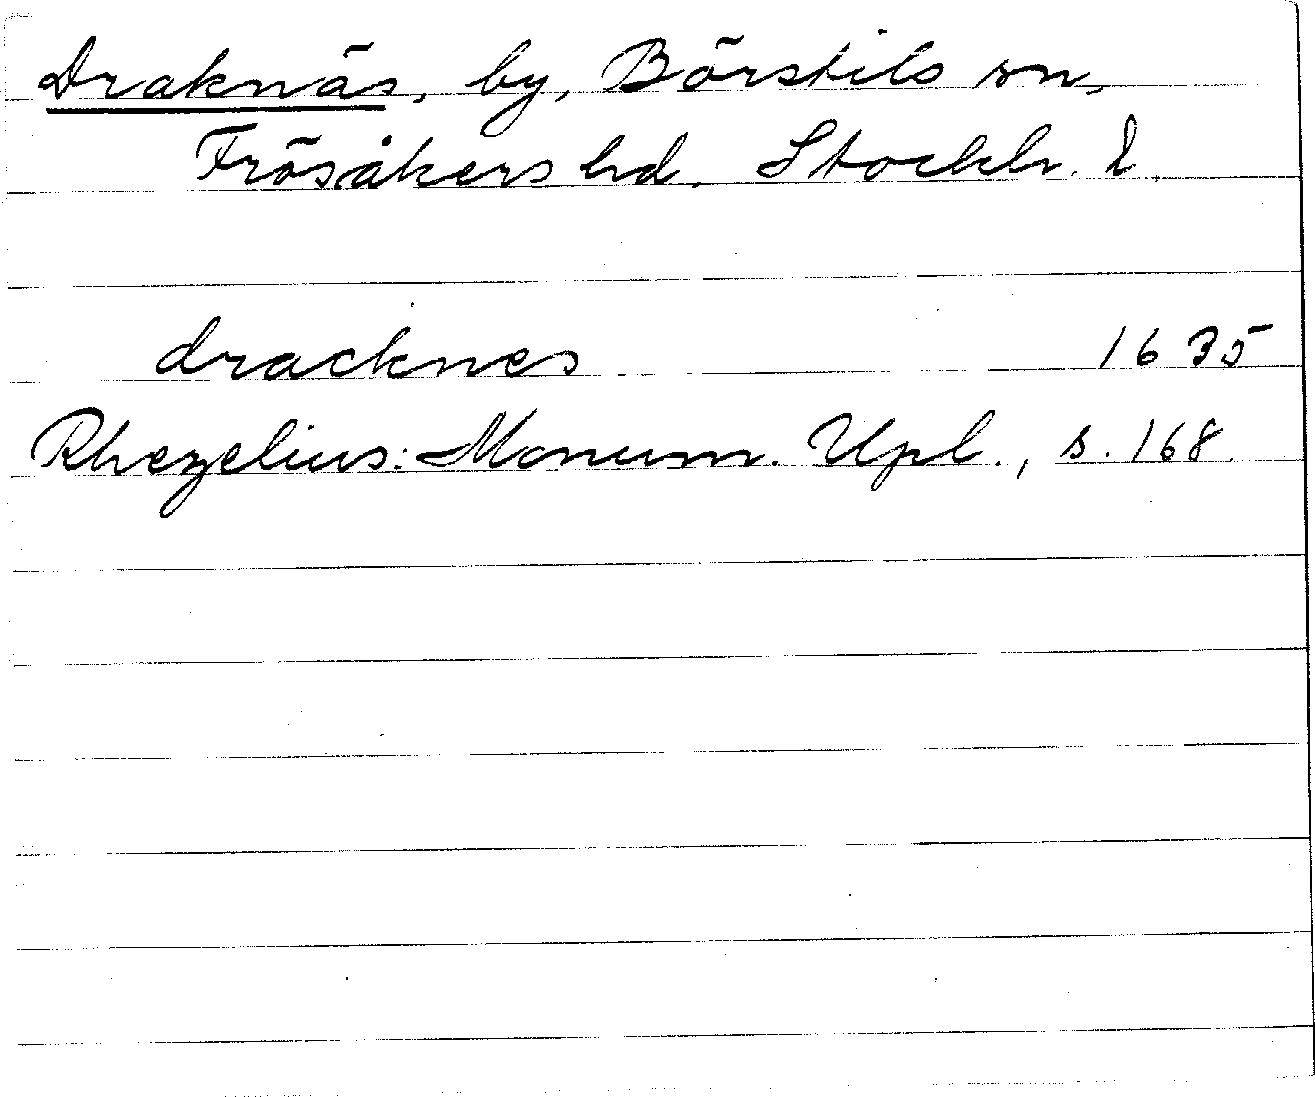 Draknäs, by, Börstils sn,
Frösåkers hd. Stockh. l.
dracknes 1635
Rhezelius: Monum. Upl., s. 168.